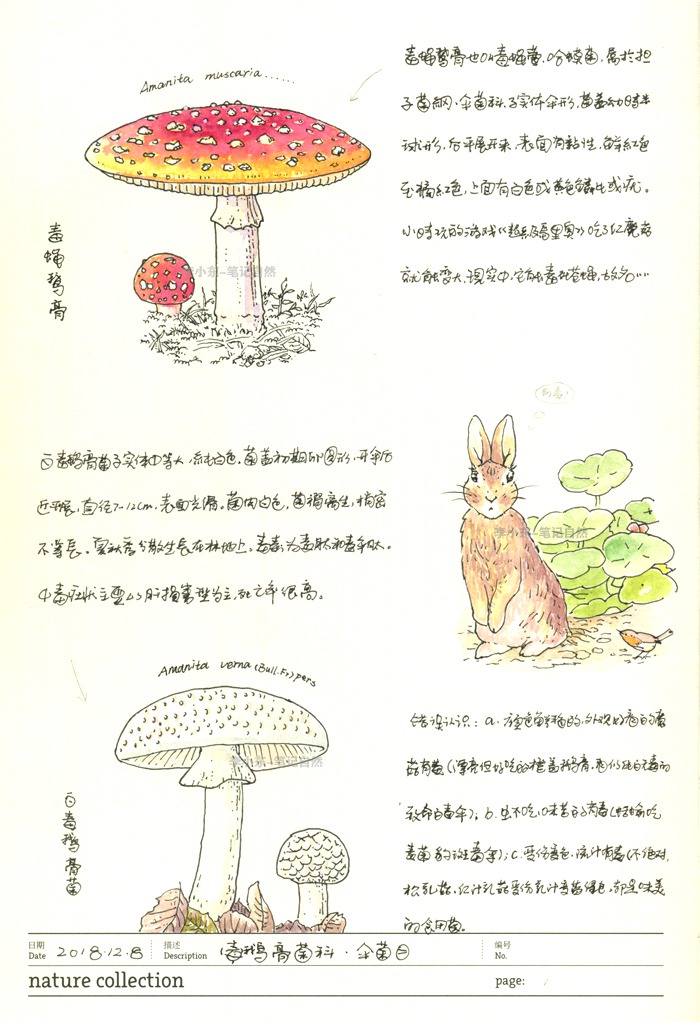 Amanita muscaria......
毒蝇鹅膏也叫毒蝇菌,哈蟆菌,属於担
子菌纲·伞菌科,子实体伞形,菌盖幼时半
球形,后平展开来,表面有粘性,鲜红色
至橘红色,上面有白色或黄色鳞片或疣。
小时玩的游戏《超级马里奥》吃了红魔菇
就能变大,现实中,它能毒死苍蝇,
毒蝇鹅膏
李小东-笔记自然
有毒!
白毒鹅膏菌子实体中等大,纯白色,菌盖初期卵圆形,开伞后
近平展,直径7-12cm,表面光滑。菌肉白色,菌褶离生,稍密
不等长。夏秋季分散生长在林地上。毒素为毒肽和毒伞肽。
中毒症状主要以肝损害型为主,死亡率很高。
李小东-笔记自然
Amanita verna (Bull.Fr) pers
李小东-笔记自然
白毒鹅膏菌
错误认识:a.颜色鲜艳的,外观好看的蘑
菇有毒(漂亮但好吃的橙盖鹅膏,
致命白毒伞);b.虫不吃,味苦的有毒(蛞蝓吃
毒菌豹斑毒伞);c.受伤变色,流汁有毒(不绝对,
松乳菇,红汁乳菇受伤乳汁变蓝绿色,却是味美
的食用菌。
日期
Date 2018.12.8
描述
Description 毒鹅膏菌科·伞菌目
编号
No.
nature collection
page: